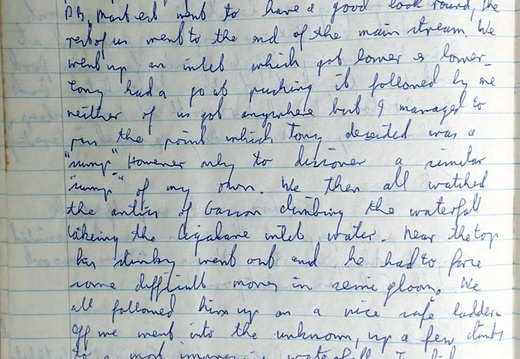 went to have a good look round, the
rest of us went to the end of the main stream. We
went up an inlet which got lower & lower.
Tony had a go at pushing it followed by me
neither of us got anywhere but I managed to
pass the point which Tony decided was a
"sump" However only to discover a similar
"sump" of my own. We then all watched
the antics of climbing the waterfall
taking the inlet water. Near the top
his stinky went out and he had to force
some difficult moves in semi gloom. We
all followed him up on a nice safe ladder.
Off we went into the unknown, up a few climbs
to a most waterfall.